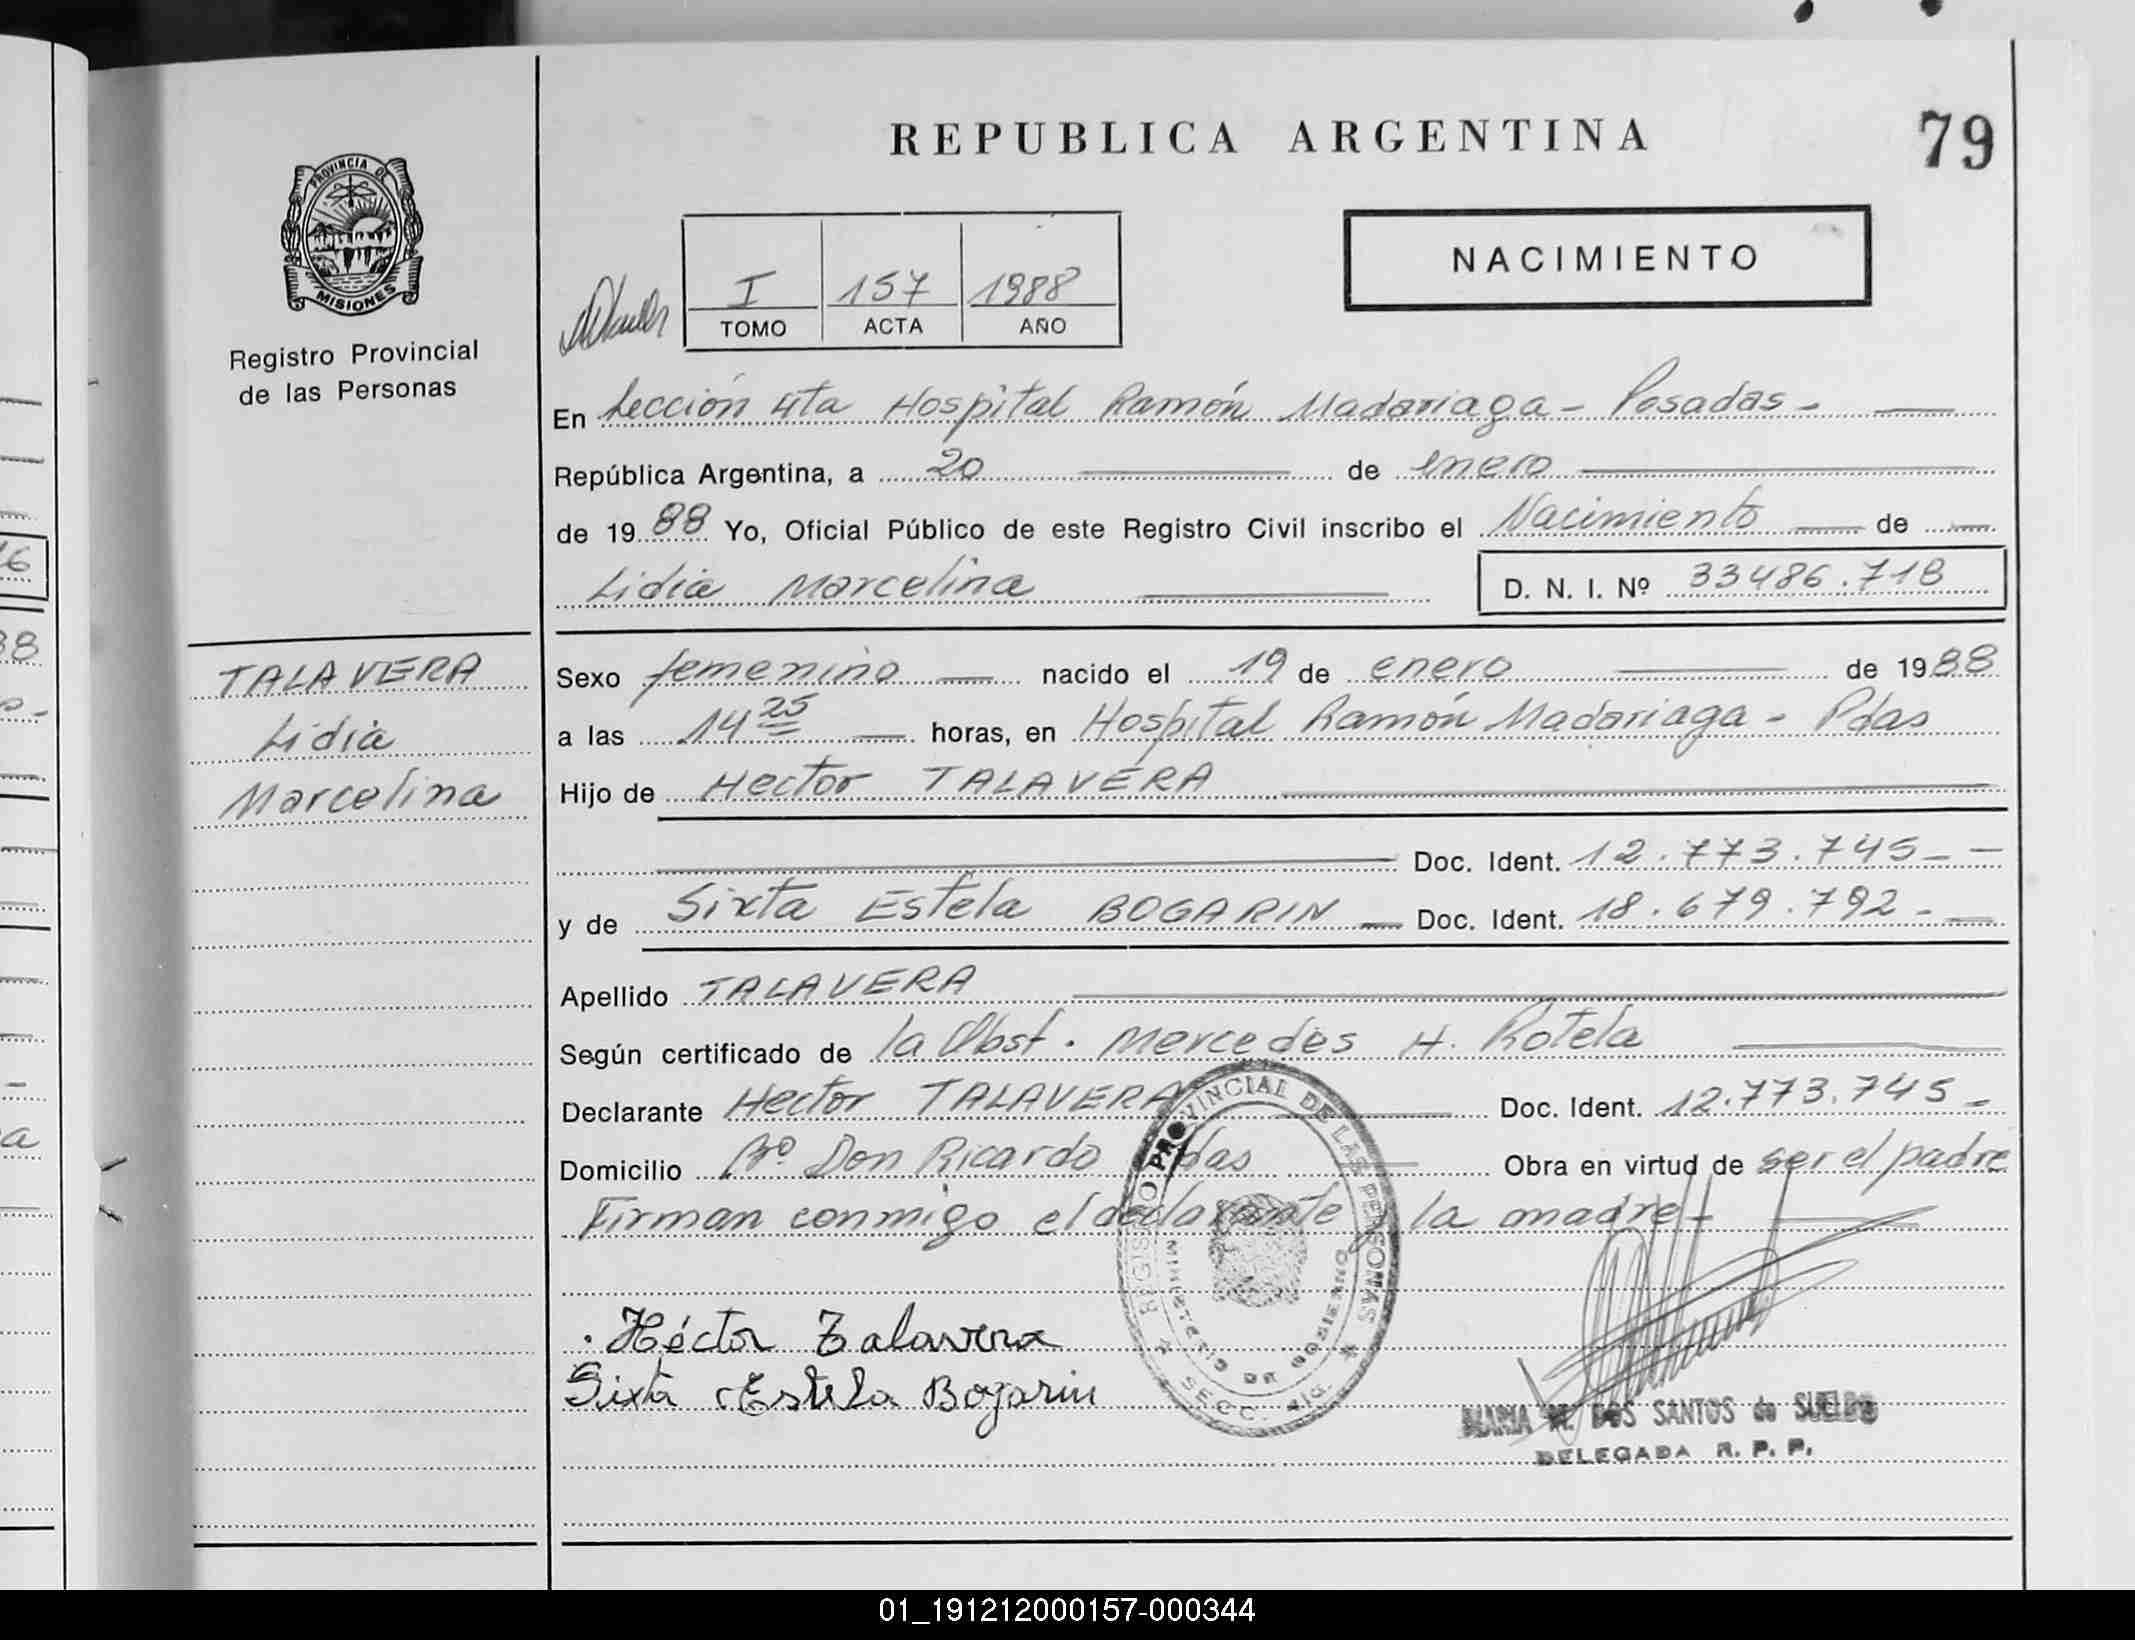 REPUBLICA ARGENTINA
79
PROVINCIA DE
MISIONES
Registro Provincial
de las Personas
NACIMIENTO
I 157 1988
TOMO ACTA AÑO
En Sección 4ta Hospital Ramón Madariaga - Posadas -
República Argentina, a 20 de enero
de 1988 Yo, Oficial Público de este Registro Civil inscribo el Nacimiento de
Lidia Marcelina D. N. I. Nº 33486.718
TALAVERA
Lidia
Marcelina
Sexo femenino nacido el 19 de enero de 1988
a las 14 25 horas, en Hospital Ramón Madariaga - Pdas
Hijo de Hector TALAVERA
Doc. Ident. 12.773.745 -
y de Sixta Estela BOGARIN Doc. Ident. 18.679.792 -
Apellido TALAVERA
Según certificado de la Obst. Mercedes H. Rotela
Declarante Hector TALAVERA Doc. Ident. 12.773.745 -
Domicilio Bº Don Ricardo Pdas Obra en virtud de ser el padre
Firman conmigo el declarante y la madre -
Héctor Talavera
Sixta Estela Bogarin
REGISTRO PROVINCIAL DE LAS PERSONAS
MINISTERIO DE GOBIERNO
SECC. 4ta.
MARIA DE DOS SANTOS de SUELDO
DELEGADA R. P. P.
01_191212000157-000344